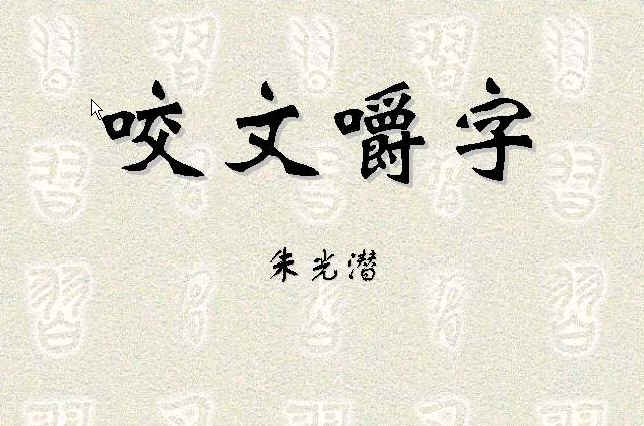 咬文嚼字
朱光潜